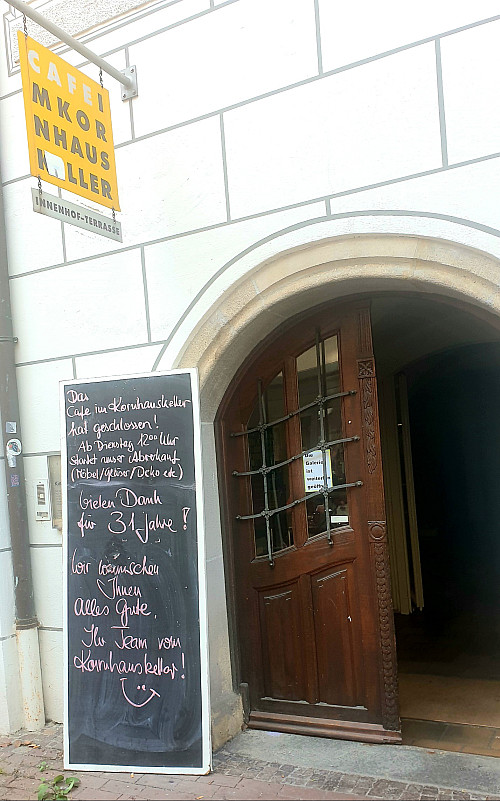 CAFE I
M KOR
NHAUS
K LLER
INNENHOF-TERRASSE
Das
Cafe im Kornhauskeller
hat geschlossen!
Ab Dienstag 12⁰⁰ Uhr
startet unser Abverkauf
(Möbel/Gläser/Deko etc.)
Vielen Dank
für 31 Jahre!
Wir wünschen
Ihnen
Alles Gute,
Ihr Team vom
Kornhauskeller!
Die
Galerie
ist
weiterhin
geöffnet